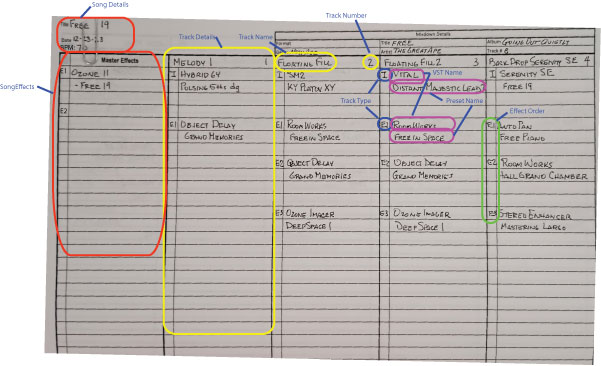 Song Details
Title FREE 19
Date 12-23-23
BPM: 70
Master Effects
SongEffects
E1 OZONE 11
- FREE 19
E2
Track Details
Track Name
Track Number
Mixdown Details
Format
Title FREE
Artist THE GREAT APE
Album GOING OUT QUIETLY
Track # 8
MELODY 1 1
I HYBRID 64
PULSING 5ths dg
E1 OBJECT DELAY
GRAND MEMORIES
FLOATING FILL 2
I SM2
KY PLATON XY
E1 ROOM WORKS
FREE IN SPACE
E2 OBJECT DELAY
GRAND MEMORIES
E3 OZONE IMAGER
DEEP SPACE 1
FLOATING FILL 2 3
VST Name
I VITAL
DISTANT MAJESTIC LEAD
Track Type
Preset Name
E1 ROOM WORKS
FREE IN SPACE
E2 OBJECT DELAY
GRAND MEMORIES
E3 OZONE IMAGER
DEEP SPACE 1
BACK DROP SERENITY SE 4
I SERENITY SE
FREE 19
Effect Order
E1 AUTO PAN
FREE PIANO
E2 ROOM WORKS
HALL GRAND CHAMBER
E3 STEREO ENHANCER
MASTERING LARGO